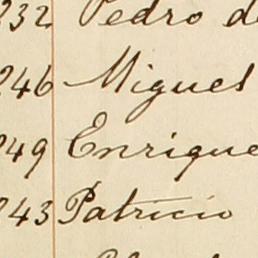 232 Pedro de
246 Miguel
249 Enrique
243 Patricio